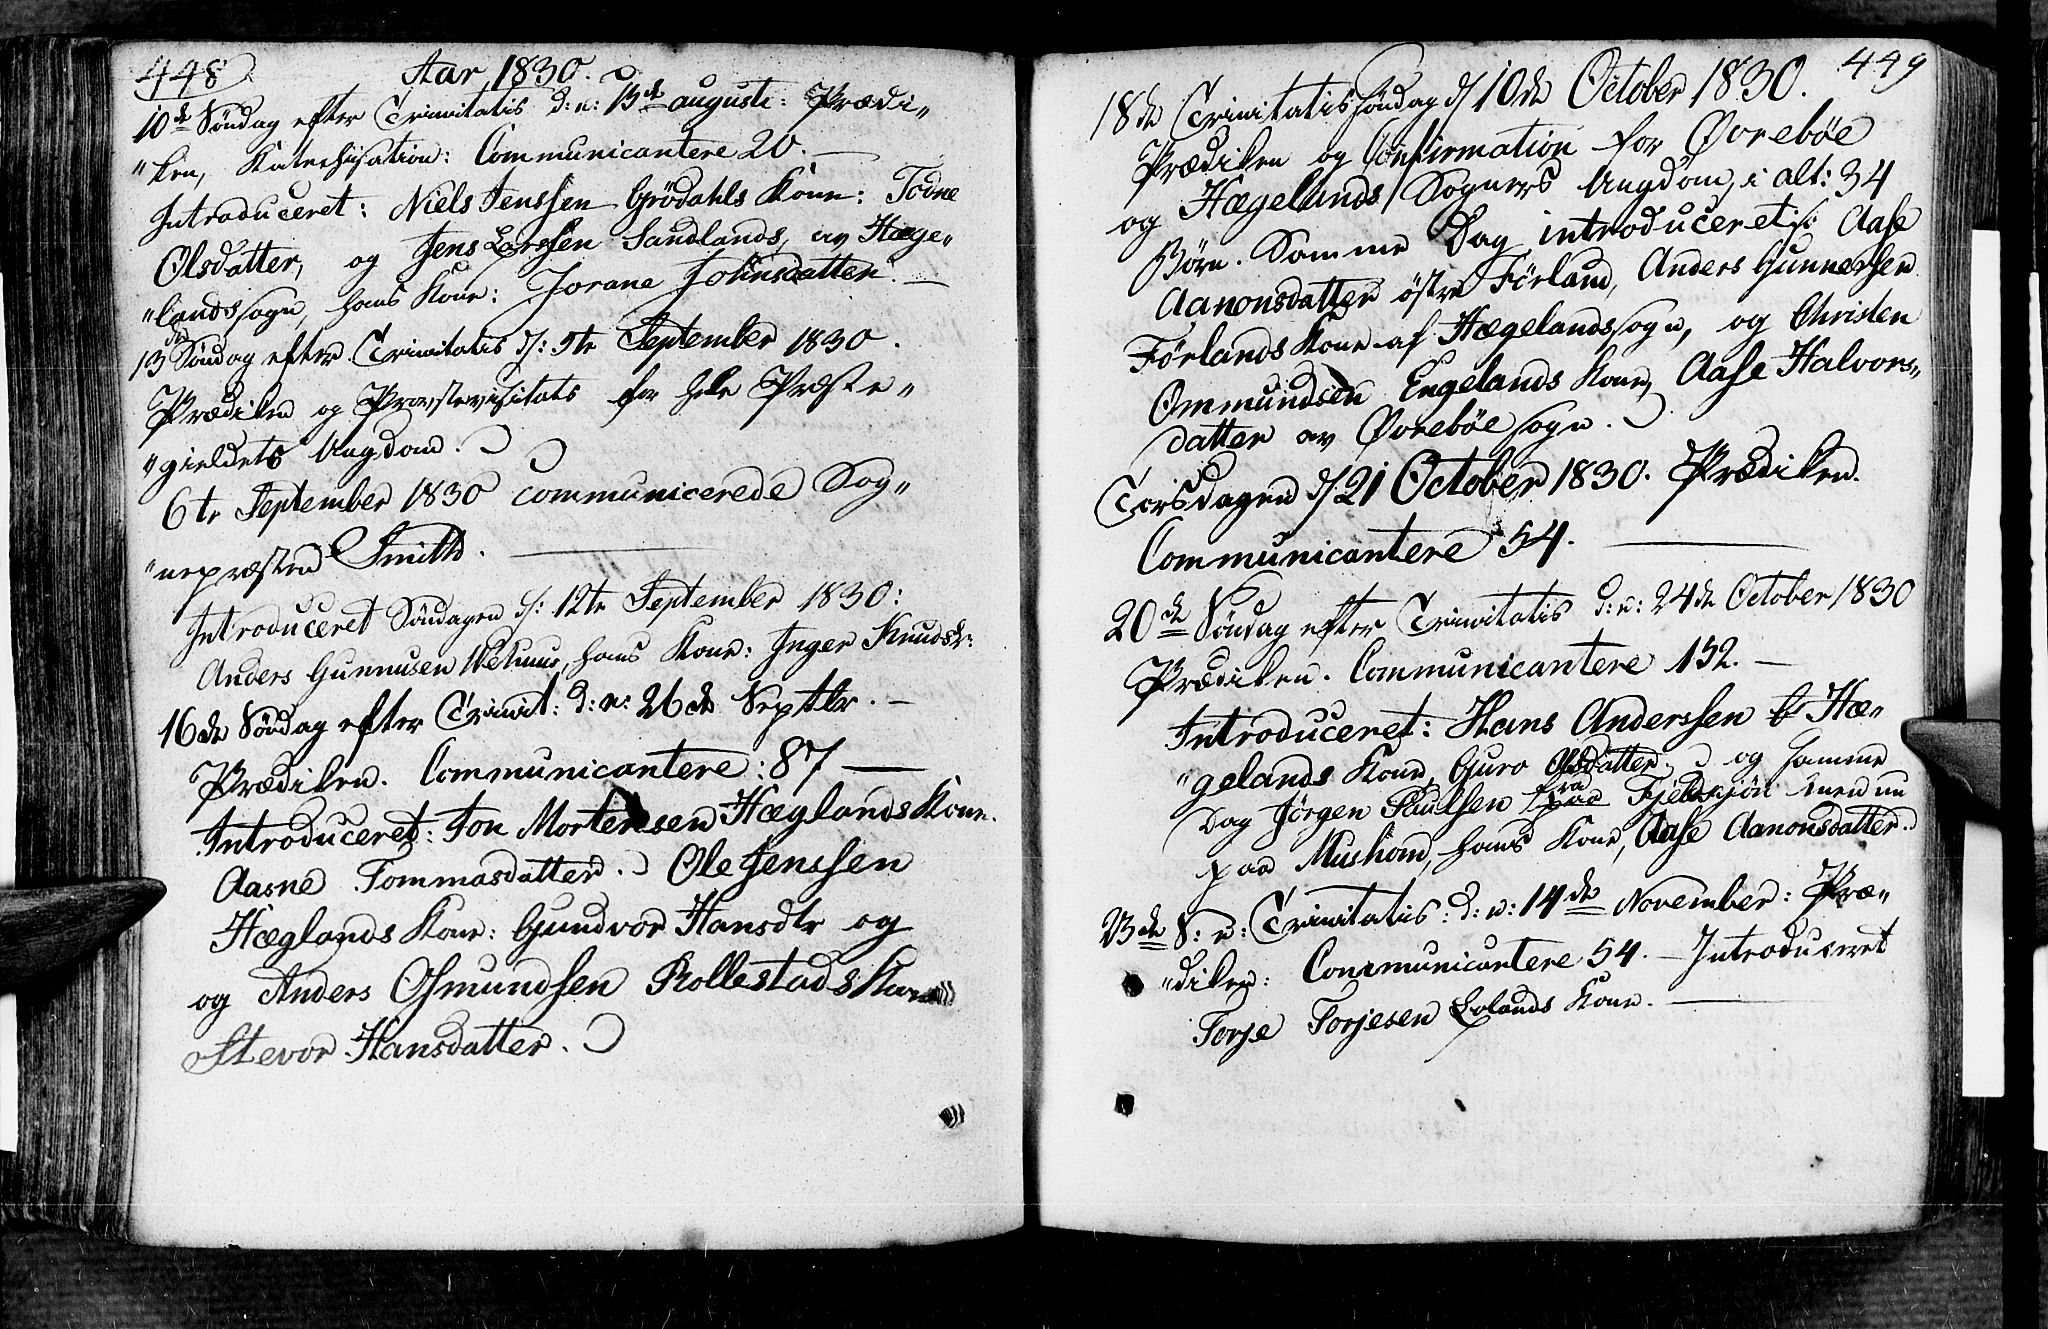 448
Aar, 1830.
10de Søndag efter Trinitatis d: e: 15de augusti: Prædi„
„ken, Katechisation: Communicantere 20.
Introduceret: Niels Jenssen Grödahls Kone: Todne
Olsdatter, og Jens Larssen Sandlands, av Hæge„
„landssogn, hans Kone: Jorane Johnsdatter. —
13de Søndag efter Trinitatis d: 5te September 1830.
Prædiken og Provstevisitats for hele Præste„
„gieldets Ungdom.
6te September 1830 communicerede Sog„
„nepræsten Smith. —
Introduceret Söndagen d: 12te September 1830:
Anders Gunnusen hans Kone: Inger Knudsd:
16de Søndag efter Trinit: d: e: 26de Septbr. —
Prædiken. Communicantere: 87 —
Introduceret: Jon Mortensen Hæglands Kone.
Aasne Tommasdatter. Ole Jenssen
Hæglands Kone: Gundvor Hansdtr og
og Anders Osmundsen Rollestads Kone
Stevor Hansdatter.
449
18de Trinitatissøndag d/ 10de October 1830.
Prædiken og Confirmation for Øvrebøe
og Hægelands Sogners Ungdom, i alt: 34
Börn. Samme Dag introduceret: Aase
Aanonsdatter östre Förland, Anders Gunnersen
Förlands Kone af Hægelandssogn, og Christen
Ommundsen Engelands Kone, Aase Halvors„
datter av Øvrebøe sogn.
Torsdagen d/ 21 October 1830. Prædiken.
Communicantere 54. —
20de Søndag efter Trinitatis d: e: 24de October 1830
Prædiken. Communicantere 152. —
Introduceret: Hans Anderssen Hæ„
„gelands Kone, Guro Olsdatter. og samme
Dag Jörgen Paulsen fra Fjeldsjön men nu
paa Mushom, hans Kone, Aase Aanonsdatter.
23de S: e: Trinitatis: d: e: 14de November: Præ„
„diken: Communicantere 54. — Introduceret
Torje Torjesen Lolands Kone. —